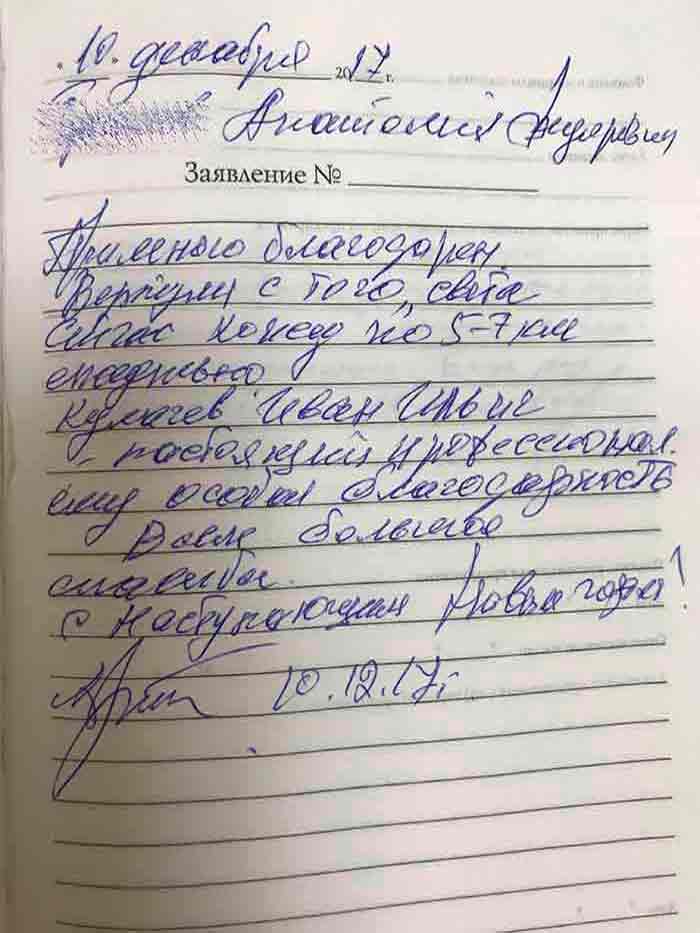 "10" декабря 2017 г.
Анатолий Андреевич
Заявление №
Премного благодарен
Вернули с того света
Сейчас хожу по 5-7 км
ежедневно
Кумачев Иван Ильич
- настоящий профессионал.
ему особая благодарность
Всем большое
спасибо.
С Наступающим Новым годом!
10.12.17г.